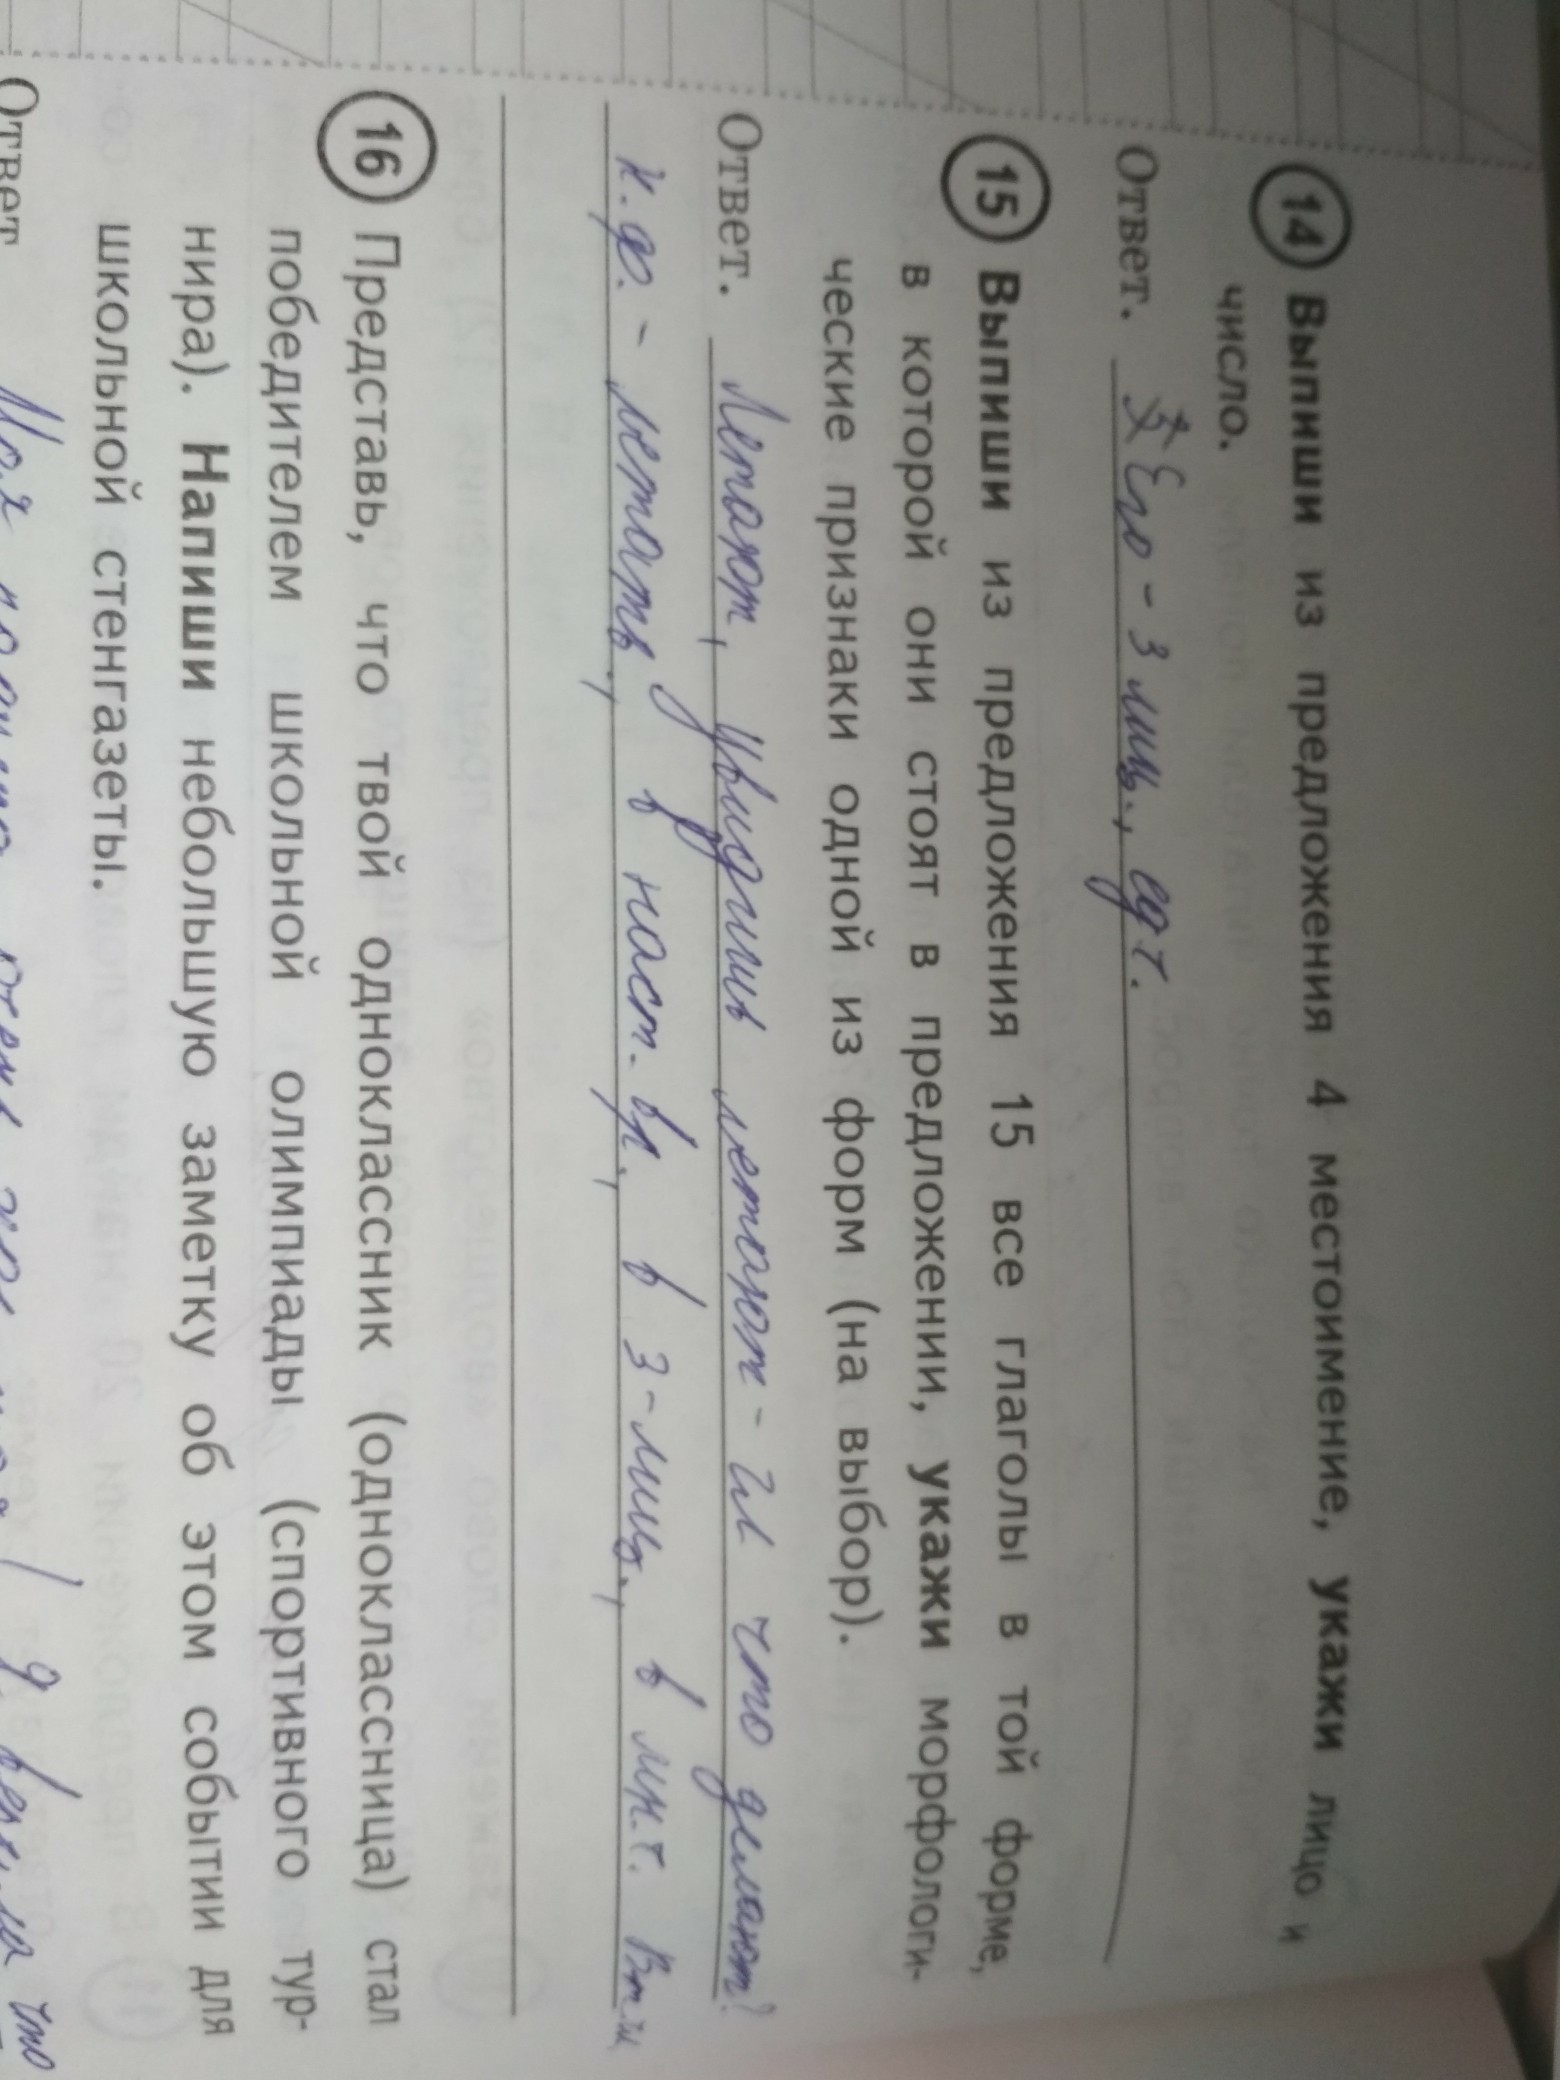 14 Выпиши из предложения 4 местоимение, укажи лицо и
число.
Ответ. Его - 3 лиц., ед ч.
15 Выпиши из предложения 15 все глаголы в той форме,
в которой они стоят в предложении, укажи морфологи-
ческие признаки одной из форм (на выбор).
Ответ. Летают, увидишь летают - Гл что делают?
н.ф. - летать, в наст. вр., в 3-лиц., в мн.ч.
16 Представь, что твой одноклассник (одноклассница) стал
победителем школьной олимпиады (спортивного тур-
нира). Напиши небольшую заметку об этом событии для
школьной стенгазеты.
Ответ что